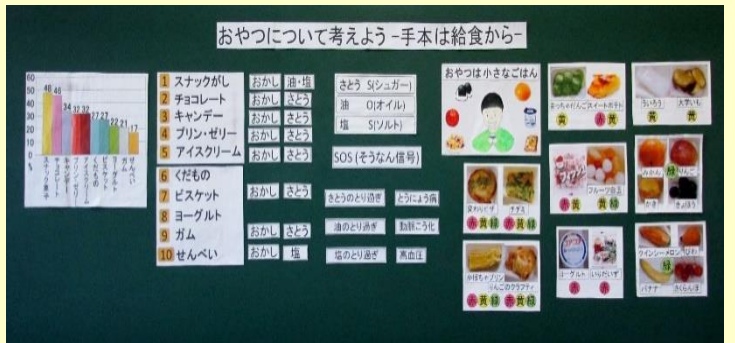 おやつについて考えよう -手本は給食から-
60
50
40
30
20
10
0
%
48 46 34 32 32 27 27 22 21 17
スナック菓子
チョコレート
キャンデー
プリン・ゼリー
アイスクリーム
くだもの
ビスケット
ヨーグルト
ガム
せんべい
1 スナックがし おかし 油・塩
2 チョコレート おかし さとう
3 キャンデー おかし さとう
4 プリン・ゼリー おかし さとう
5 アイスクリーム おかし さとう
6 くだもの
7 ビスケット おかし さとう
8 ヨーグルト
9 ガム おかし さとう
10 せんべい おかし 塩
さとう S(シュガー)
油 O(オイル)
塩 S(ソルト)
SOS (そうなん信号)
さとうのとり過ぎ とうにょう病
油のとり過ぎ 動脈こう化
塩のとり過ぎ 高血圧
おやつは小さなごはん
まっちゃだんご スイートポテト
黄 赤 黄
ういろう 大学いも
黄 黄
チヂミ
赤 黄 緑 赤 黄 緑
フルーツ白玉
赤 黄 黄 緑
みかん りんご
緑
かき きょほう
かぼちゃプリン
りんごのクラフティ
赤 黄 緑 赤 黄 緑
ヨーグルト いりだいず
赤 赤
クインシーメロン びわ
緑
バナナ さくらんぼ